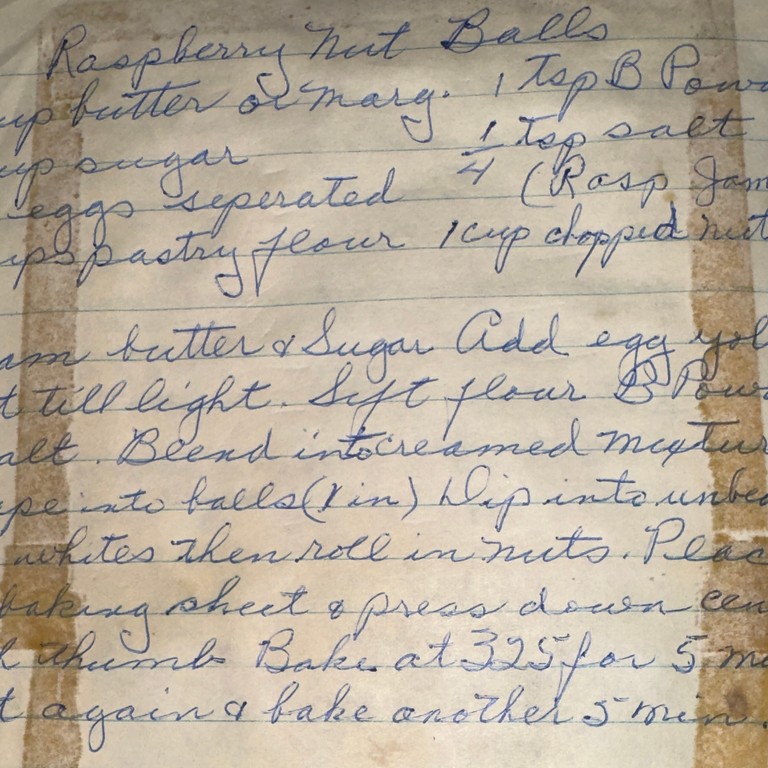 Raspberry Nut Balls
up butter or marg. 1 Tsp B Powd
up sugar 1/4 Tsp salt
eggs seperated (Rasp Jam
ups pastry flour 1 cup chopped nut
am butter & Sugar Add egg yol
t till light. Sift flour B Powd
alt. Blend into creamed mixtur
ape into balls (1 in) Dip into unbea
whites then roll in nuts. Plac
baking sheet & press down cen
h thumb Bake at 325 for 5 mi
t again & bake another 5 min.